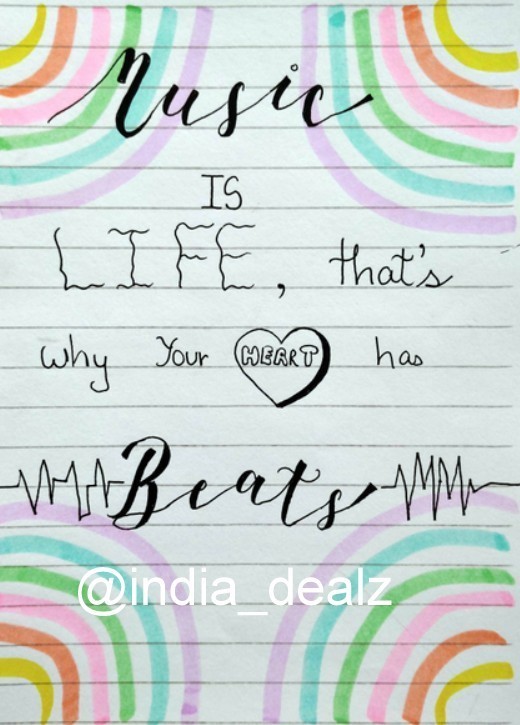 Music
IS
LIFE, that's
why Your HEART has
Beats
@india_dealz